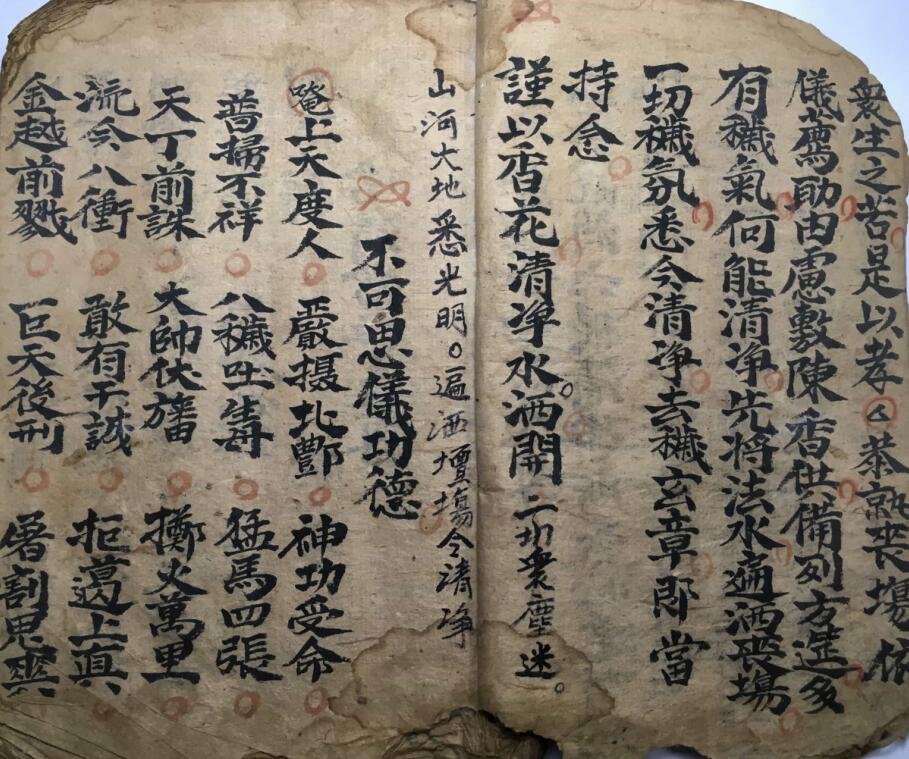 衆生之苦是以孝厶恭就喪場依
儀薦助由慮敷陳香供備列方筵多
有穢氣何能清淨先將法水遍洒喪場
一切穢氛悉令清淨去穢玄章即當
持念
謹以香花清淨水洒開一切衆塵迷
山河大地悉光明遍洒壇場令清淨
不可思儀功德
唵上天度人 嚴摄北酆 神功受命
普掃不祥 八穢吐毒 猛馬四張
天丁前誅 大帥伏旛 擲火萬里
流令八衝 敢有干誠 拒遏上真
金越前戮 巨天後刑 屠割鬼爽